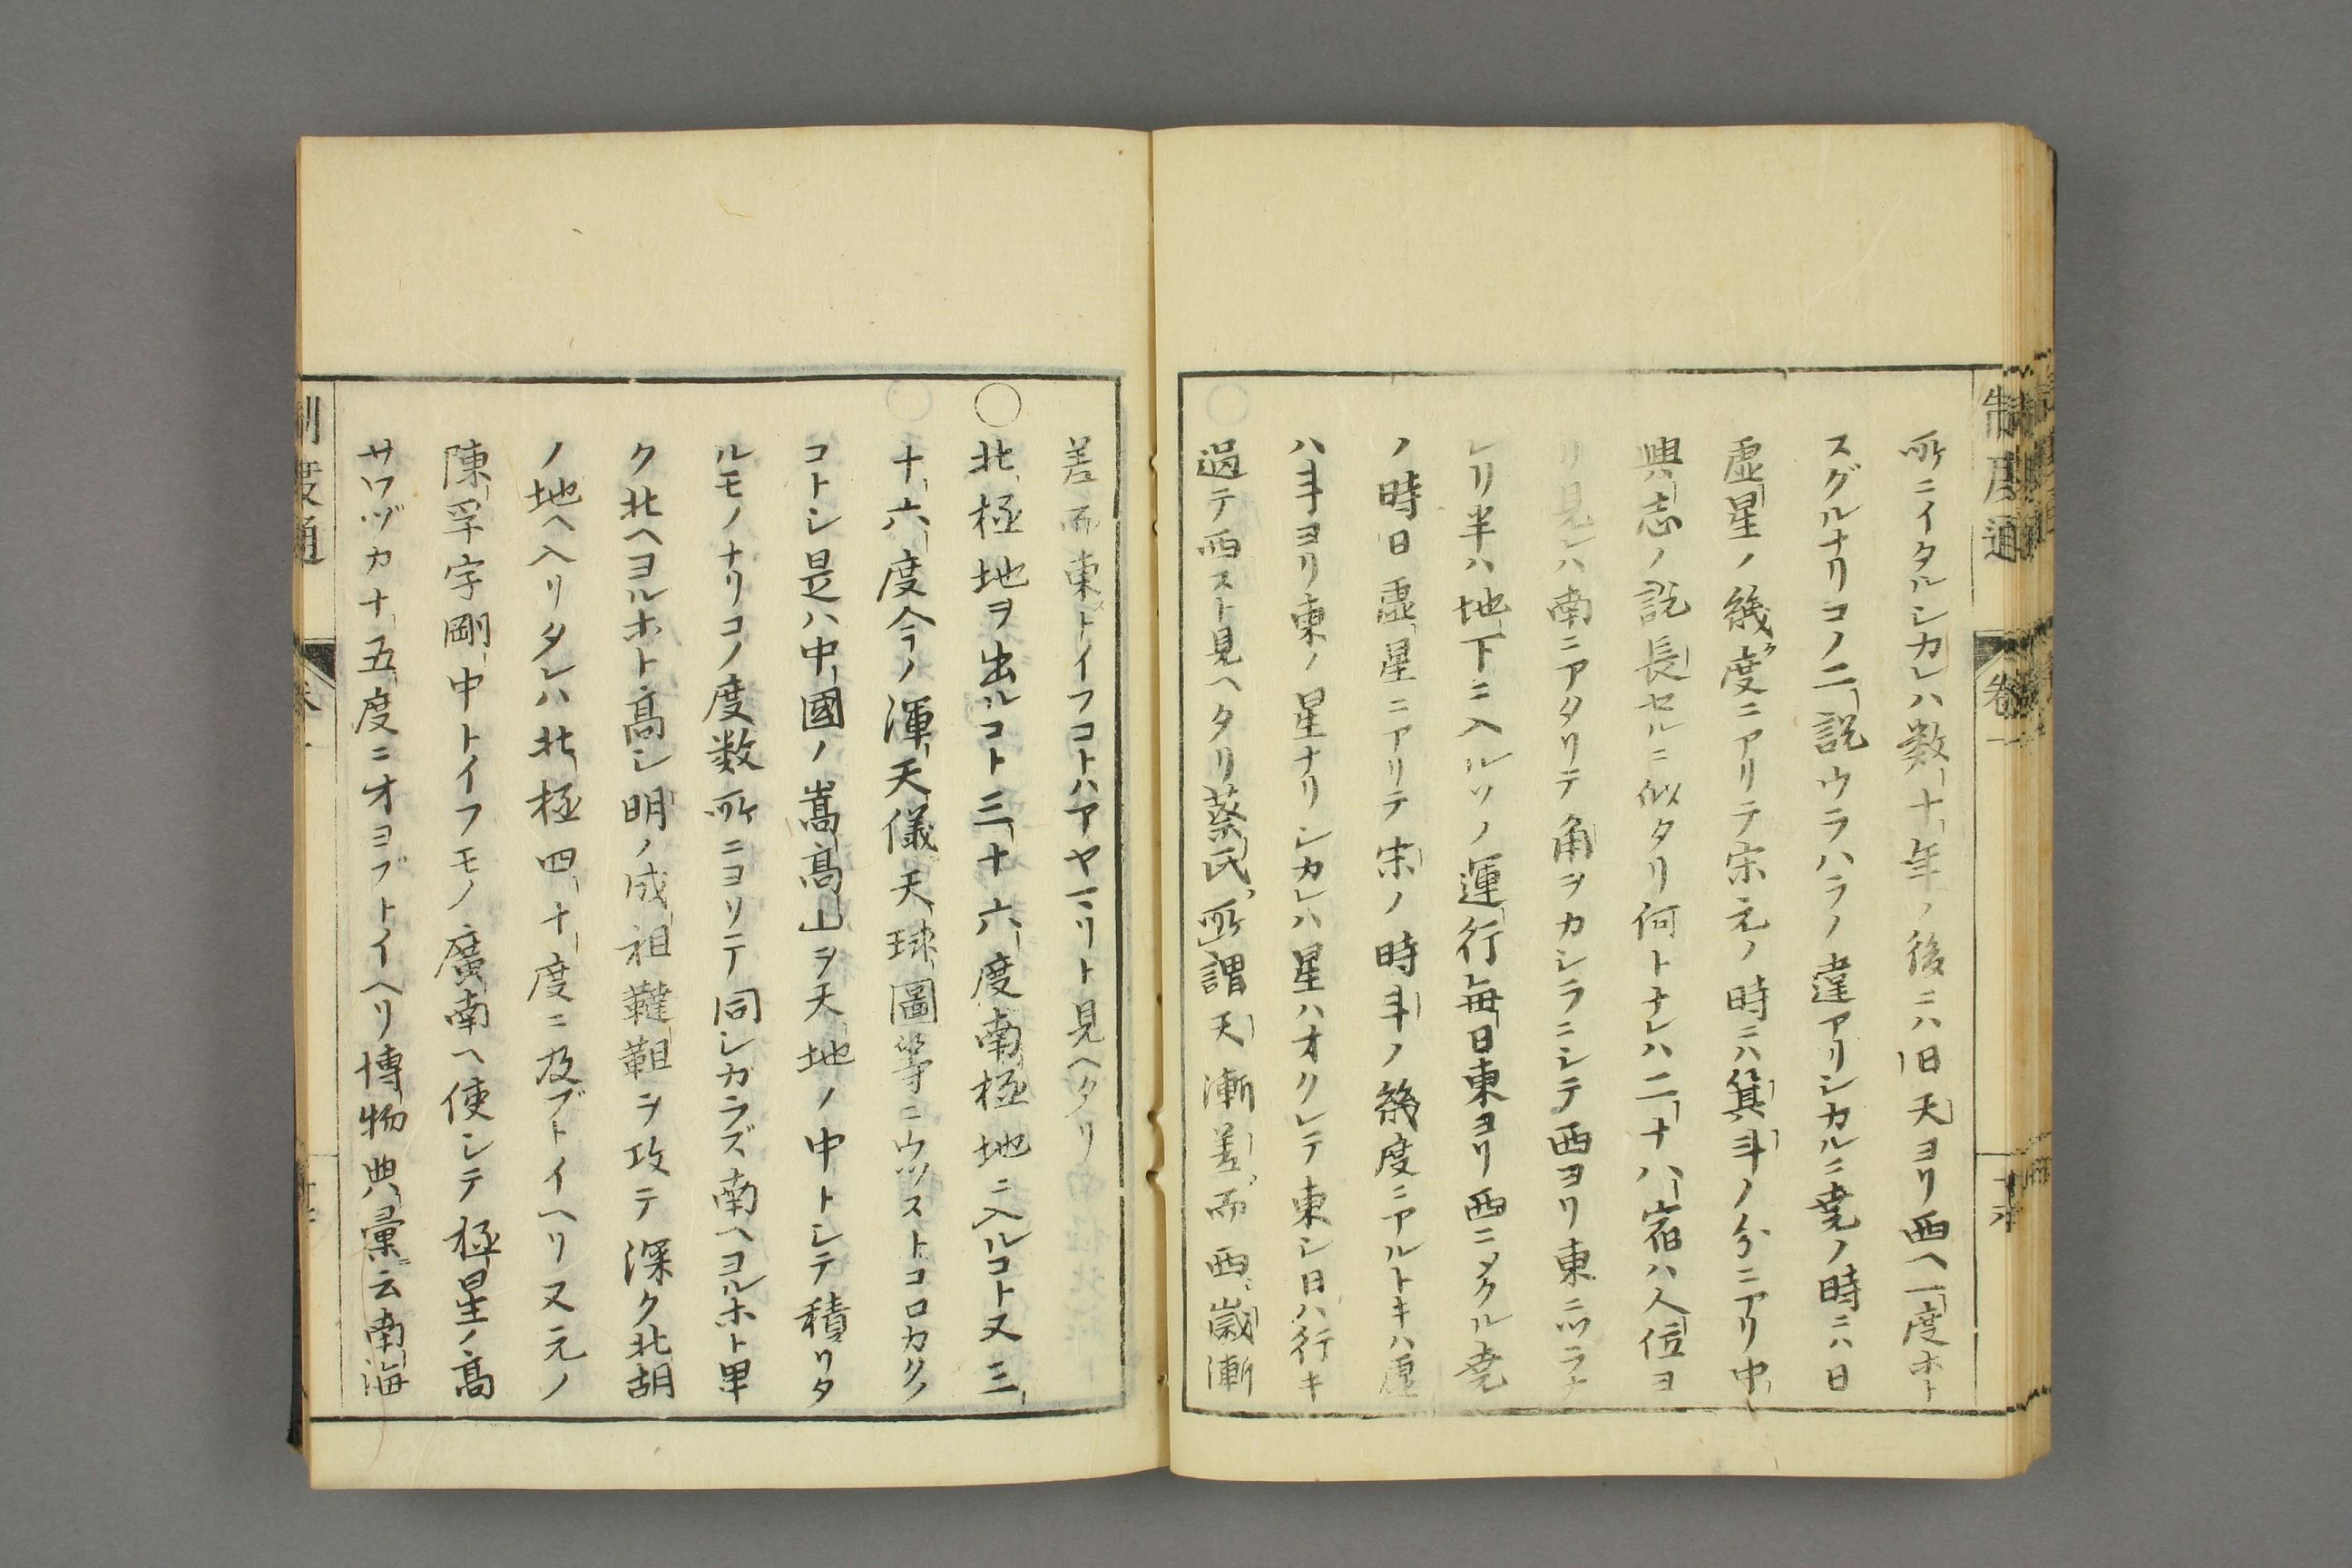 制度通
卷一
所ニイタルシカレハ數十年ノ後ニハ旧天ヨリ西ヘ一度ホト
スグルナリコノ二説ウラハラノ違アリシカルニ堯ノ時ニハ日
虚星ノ幾度ニアリテ宋元ノ時ニハ箕斗ノ分ニアリ中
興志ノ説長セルニ似タリ何トナレハ二十八宿ハ人位ヨ
リ見レハ南ニアタリテ角ヲカシラニシテ西ヨリ東ニツラナ
レリ半ハ地下ニ入ルソノ運行毎日東ヨリ西ニメクル堯
ノ時日虚星ニアリテ宋ノ時斗ノ幾度ニアルトキハ虚
ハ斗ヨリ東ノ星ナリシカレハ星ハオクレテ東シ日ハ行キ
過テ西スト見ヘタリ蔡氏所謂天漸差而西歳漸
差而東トイフコトハアヤマリト見ヘタリ
○北極地ヲ出ルコト三十六度南極地ニ入ルコト又三
十六度今ノ渾天儀天球圖等ニウツストコロカクノ
コトシ是ハ中國ノ嵩高山ヲ天地ノ中トシテ積リタ
ルモノナリコノ度数所ニヨリテ同シカラズ南ヘヨルホト卑
ク北ヘヨルホト高シ明ノ成祖韃靼ヲ攻テ深ク北胡
ノ地ヘ入リタレハ北極四十度ニ及ブトイヘリ又元ノ
陳孚字剛中トイフモノ廣南ヘ使シテ極星ノ高
サワヅカ十五度ニオヨブトイヘリ博物典彙云南海
制度通